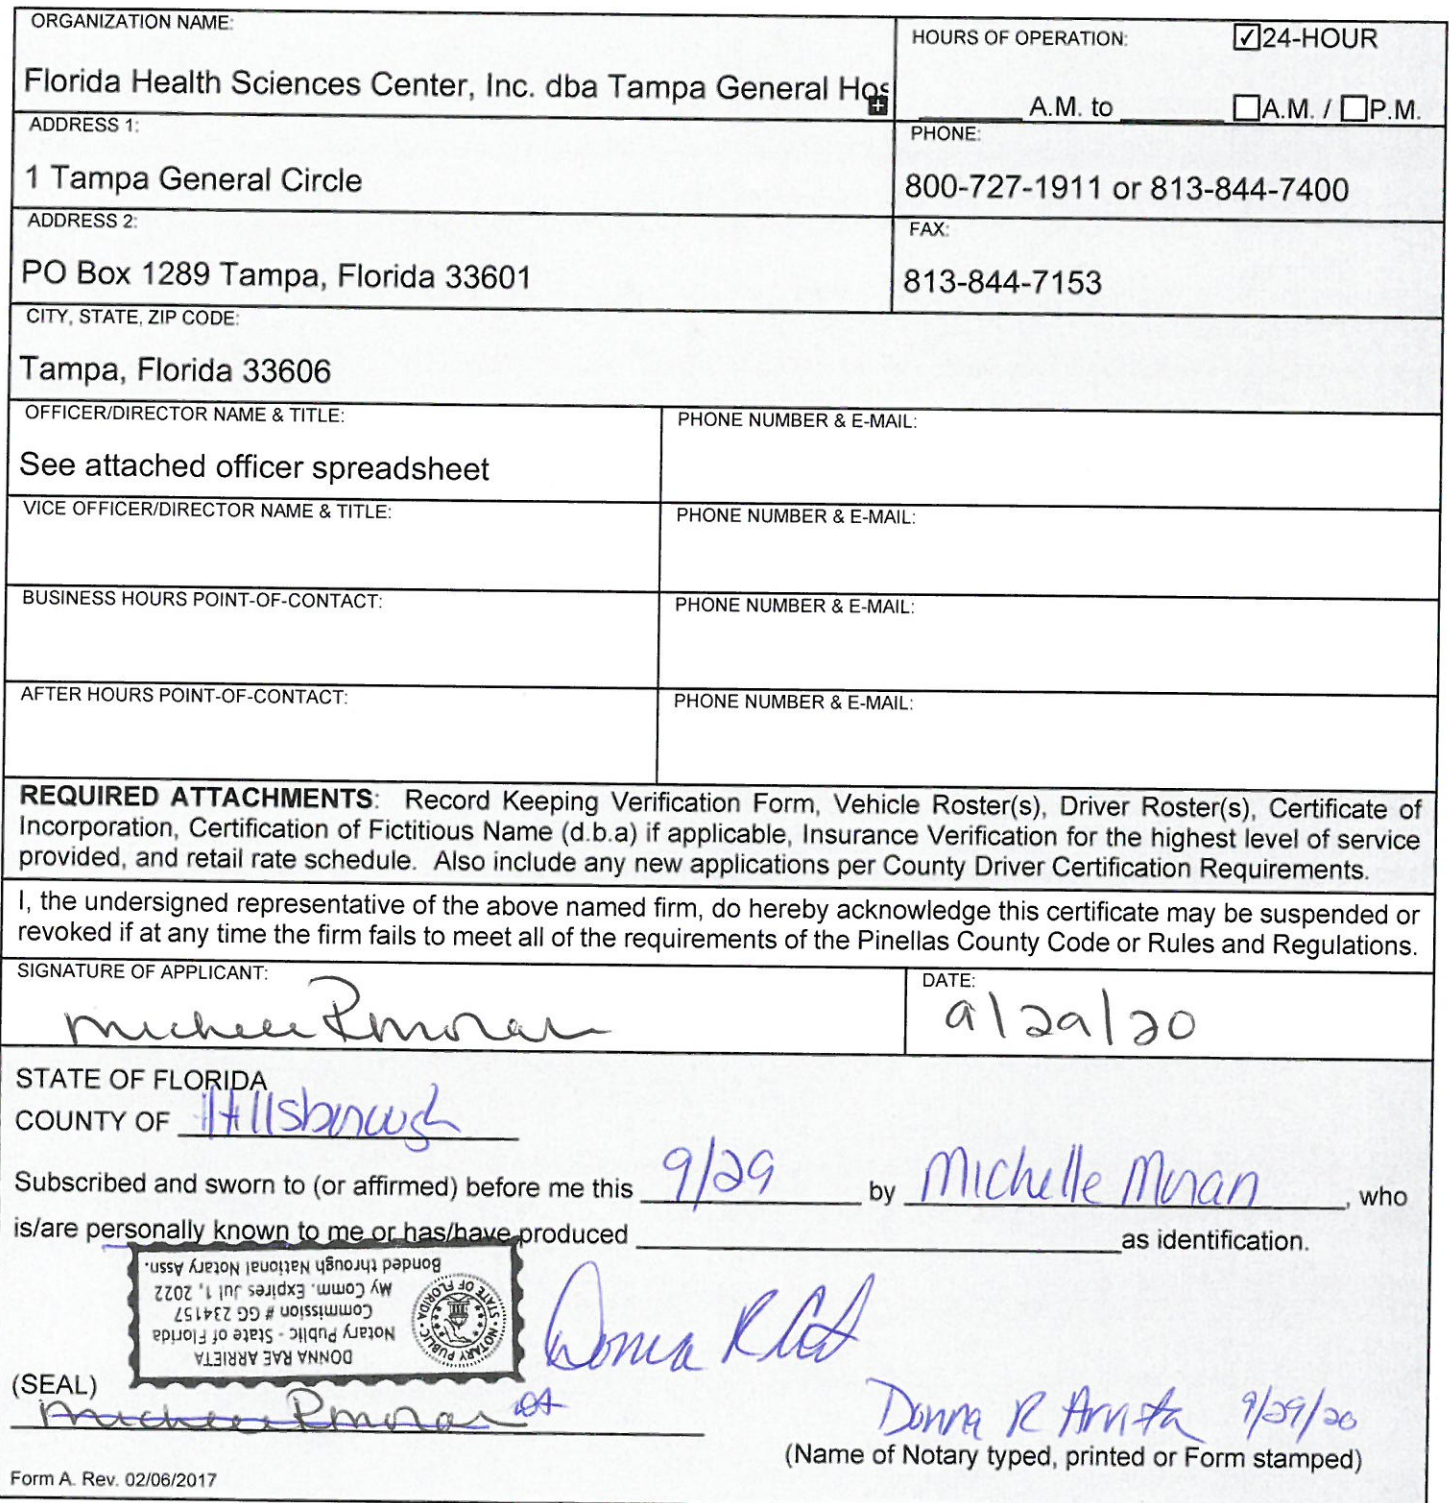 ORGANIZATION NAME:
Florida Health Sciences Center, Inc. dba Tampa General Hos
HOURS OF OPERATION: ☑24-HOUR
______ A.M. to ______ ☐A.M. / ☐P.M.
ADDRESS 1:
1 Tampa General Circle
PHONE:
800-727-1911 or 813-844-7400
ADDRESS 2:
PO Box 1289 Tampa, Florida 33601
FAX:
813-844-7153
CITY, STATE, ZIP CODE:
Tampa, Florida 33606
OFFICER/DIRECTOR NAME & TITLE:
See attached officer spreadsheet
PHONE NUMBER & E-MAIL:
VICE OFFICER/DIRECTOR NAME & TITLE:
PHONE NUMBER & E-MAIL:
BUSINESS HOURS POINT-OF-CONTACT:
PHONE NUMBER & E-MAIL:
AFTER HOURS POINT-OF-CONTACT:
PHONE NUMBER & E-MAIL:
REQUIRED ATTACHMENTS: Record Keeping Verification Form, Vehicle Roster(s), Driver Roster(s), Certificate of
Incorporation, Certification of Fictitious Name (d.b.a) if applicable, Insurance Verification for the highest level of service
provided, and retail rate schedule. Also include any new applications per County Driver Certification Requirements.
I, the undersigned representative of the above named firm, do hereby acknowledge this certificate may be suspended or
revoked if at any time the firm fails to meet all of the requirements of the Pinellas County Code or Rules and Regulations.
SIGNATURE OF APPLICANT:
Michelle R Moran
DATE:
9/29/20
STATE OF FLORIDA
COUNTY OF Hillsborough
Subscribed and sworn to (or affirmed) before me this 9/29 by Michelle Moran, who
is/are personally known to me or has/have produced ______ as identification.
DONNA RAE ARRIETA
Notary Public - State of Florida
Commission # GG 234157
My Comm. Expires Jul 1, 2022
Bonded through National Notary Assn.
NOTARY PUBLIC
STATE OF FLORIDA
(SEAL)
Michelle R Moran
Donna R Arrieta 9/29/20
(Name of Notary typed, printed or Form stamped)
Form A. Rev. 02/06/2017